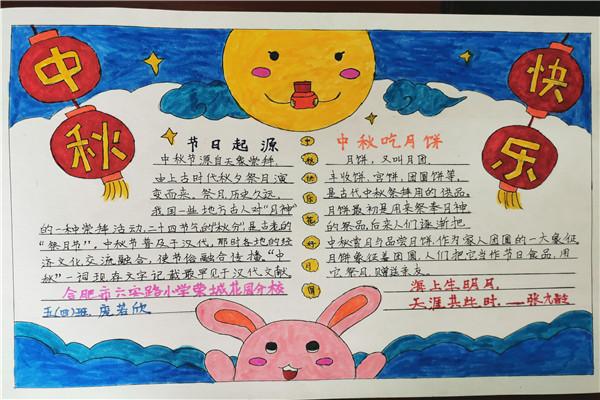 中
秋
快
乐
节日起源
中秋节源自天象崇拜,
由上古时代秋夕祭月演
变而来。祭月历史久远,
我国一些地方古人对"月神"
的一种崇拜活动,二十四节气的"秋分"是古老的
"祭月节"。中秋节普及于汉代,那时各地的经
济文化交流融合,使节俗融合传播。"中
秋"一词现在文字记载最早见于汉代文献
合肥市六安路小学荣城花园分校
五(四)班 庞若欣
中
秋
快
乐
花
好
月
圆
中秋吃月饼
月饼,又叫月团、
丰收饼、宫饼、团圆饼等,
是古代中秋祭拜用的供品。
月饼最初是用来祭奉月神
的祭品,后来人们逐渐把
中秋赏月与品尝月饼,作为家人团圆的一大象征
月饼象征着团圆,人们把它当作节日食品,用
它祭月、赠送亲友。
海上生明月,
天涯共此时。——张九龄